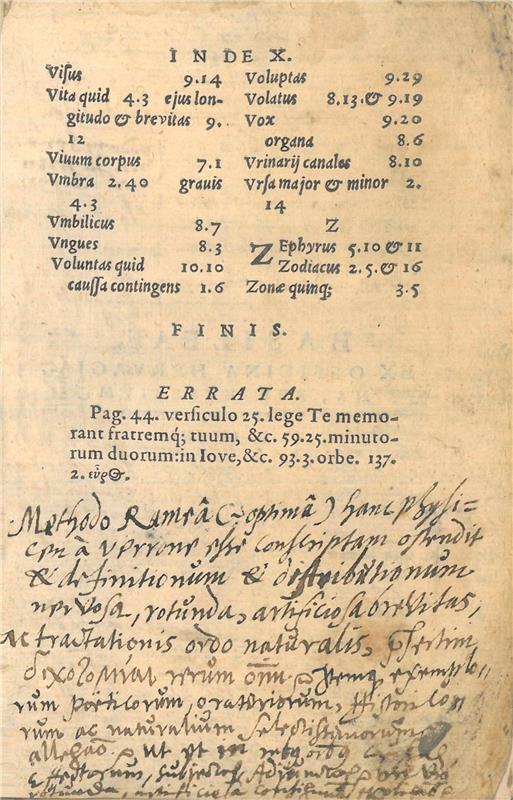 INDEX.
Visus 9.14
Vita quid 4.3 ejus lon-
gitudo & brevitas 9.
12
Viuum corpus 7.1
Vmbra 2.40 grauis
4.3
Vmbilicus 8.7
Vngues 8.3
Voluntas quid 10.10
caussa contingens 1.6
Voluptas 9.29
Volatus 8.13.& 9.19
Vox 9.20
organa 8.6
Vrinarij canales 8.10
Vrsa major & minor 2.
14
Z
ZEphyrus 5.10 & 11
Zodiacus 2.5.& 16
Zonæ quinq; 3.5
FINIS.
ERRATA.
Pag. 44. versiculo 25. lege Te memo-
rant fratremq́; tuum, &c. 59.25.minuto-
rum duorum:in Iove, &c. 93.3.orbe. 137.
2. εὖρος.
Methodo Rameâ (optimâ) hanc physi=
cen à Verrone esse conscriptam ostendit
& definitionum & distributionum
nervosa, rotunda, artificiosa brevitas,
Ac tractationis ordo naturalis,
rerum
exemplo-
rum poëticorum, oratoriorum, Histori
rum ac naturalium selectissimorum
ut
Effectorum, Subjectorum, Adjunctorum
rotunda, artificiosa